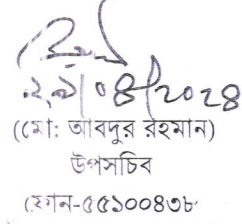 ২৯/০৪/২০২৪
(মো: আবদুর রহমান)
উপসচিব
(ফোন-৫৫১০০৪৩৮